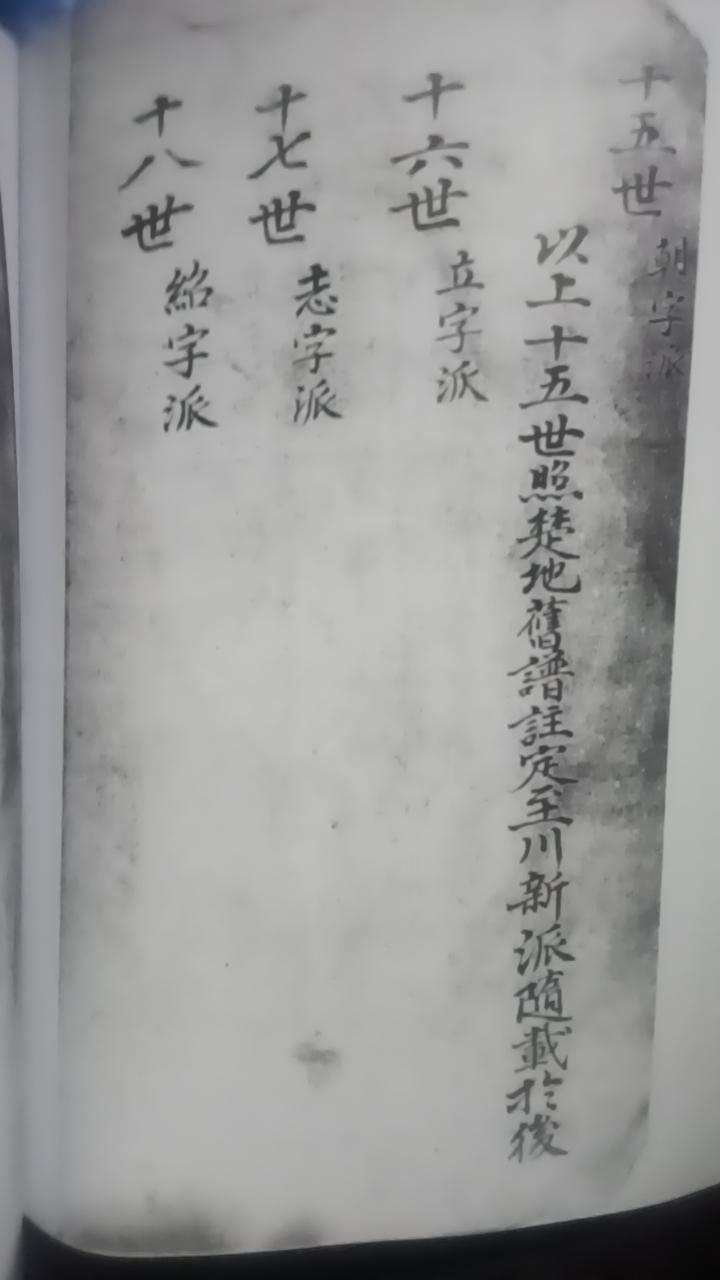 十五世 朝字派
以上十五世照楚地舊譜註定至川新派隨載於後
十六世 立字派
十七世 志字派
十八世 紹字派